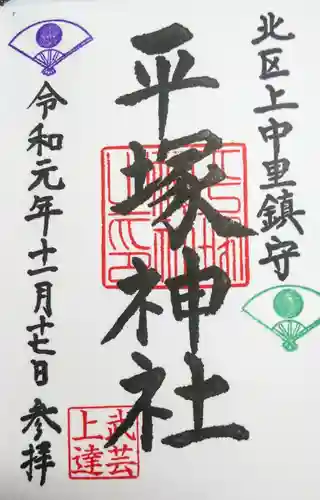 北区上中里鎮守
平塚神社
武芸
上達
令和元年十一月十七日 参拝